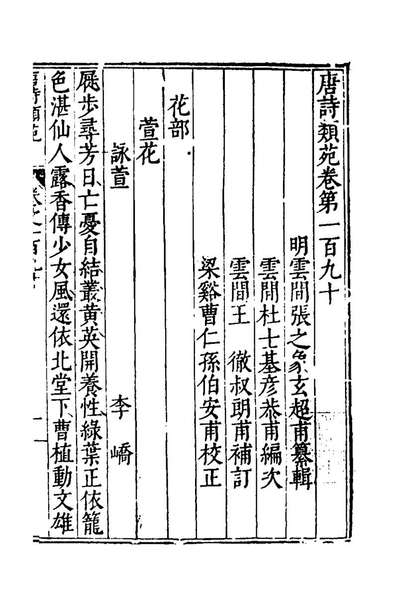 唐詩類苑卷第一百九十
明雲間張之象玄超甫纂輯
雲間杜士基彥恭甫編次
雲間王　徹叔朗甫補訂
梁谿曹仁孫伯安甫校正
花部
萱花
詠萱　李嶠
屣步尋芳日亡憂自結叢黃英開養性綠葉正依籠
色湛仙人露香傳少女風還依北堂下曹植動文雄
唐詩類苑　卷之一百九十　一